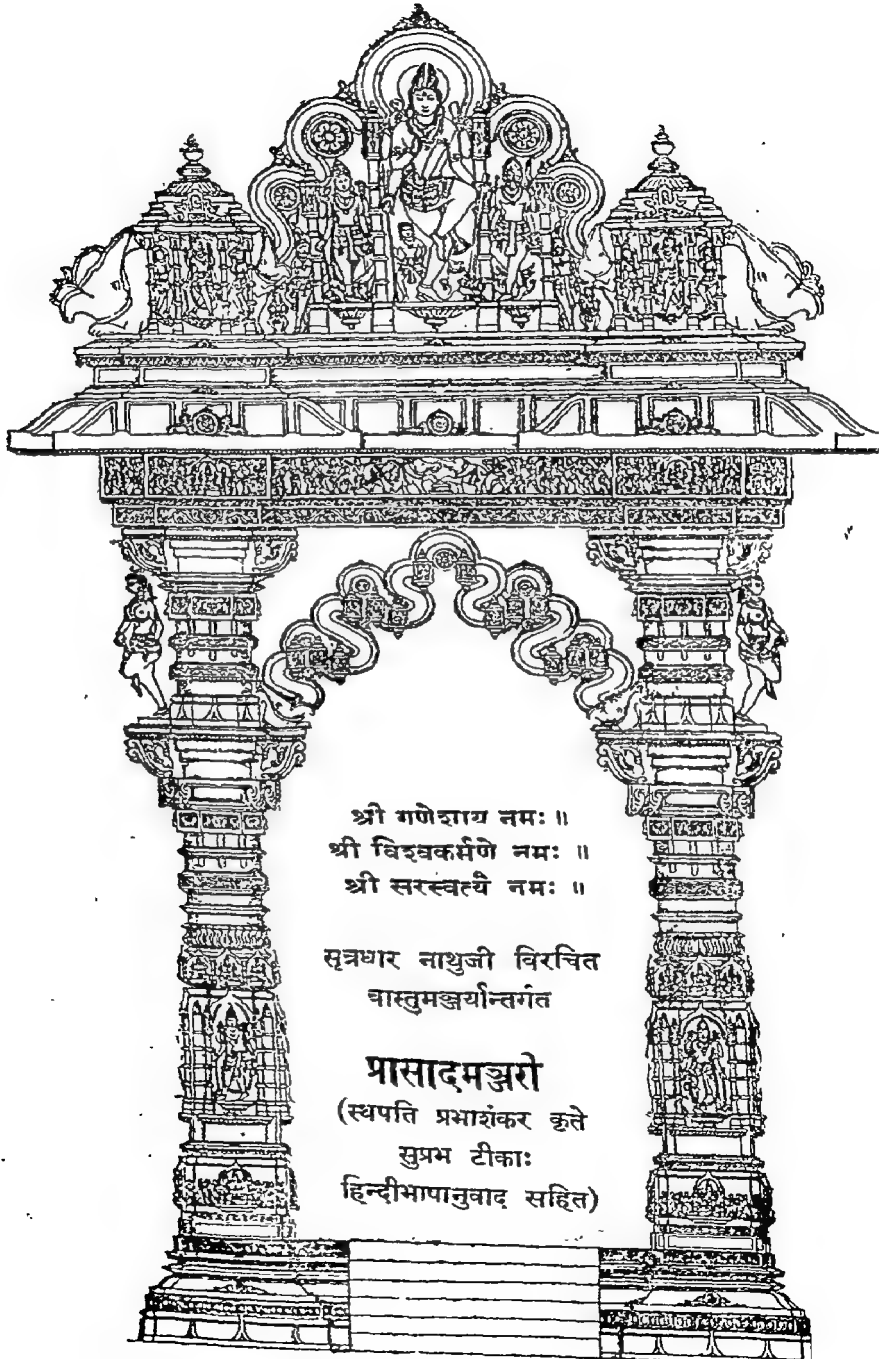 श्री गणेशाय नमः ॥
श्री विश्वकर्मणे नमः ॥
श्री सरस्वत्यै नमः ॥
सूत्रधार नाथुजी विरचित
वास्तुमञ्जर्यान्तर्गत
प्रासादमञ्जरी
(स्थपति प्रभाशंकर कृते
सुप्रभ टीकाः
हिन्दीभाषानुवाद सहित)